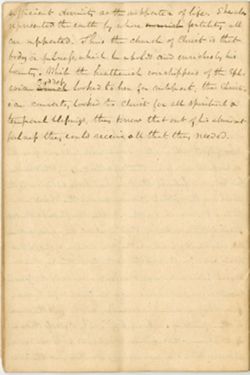 efficient divinity as the supporter of life. She also
represented the earth by whose fertility all
are supported. Thus the church of Christ is that
body or fulness, which he upholds and enriches by his
bounty. While the heathenish worshippers of the Eph-
esian goddess looked to her for support, the Christ-
ian converts, looked to Christ for all spiritual &
temporal blessings, they knew that out of his
fulness they could receive all that they needed.